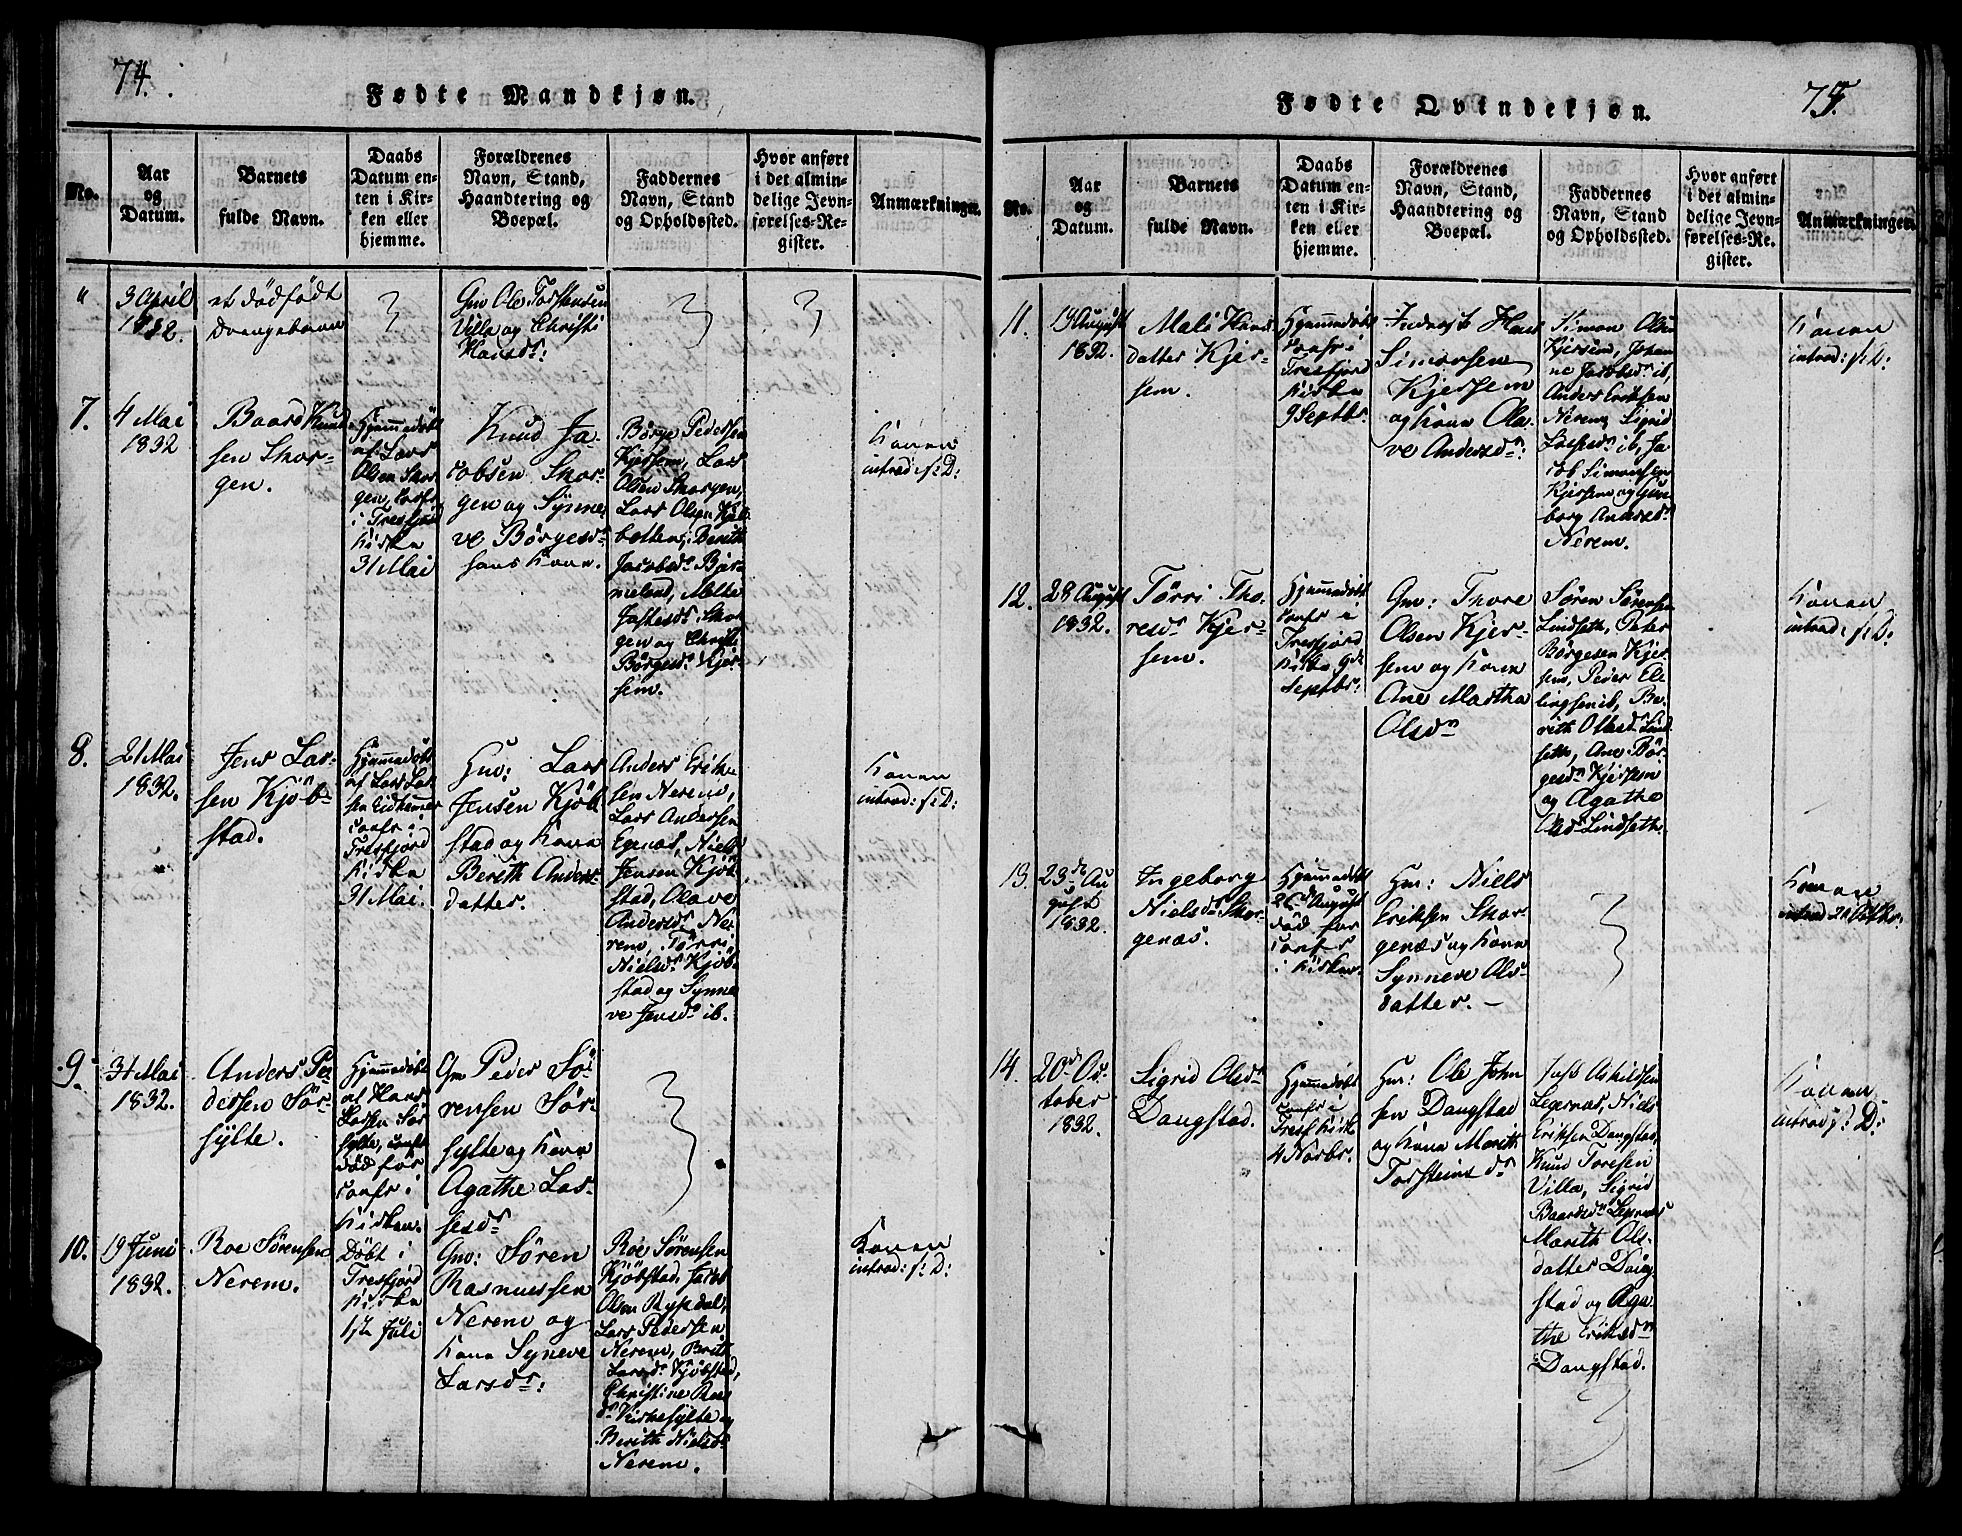 74.
Fødte Mandkjøn.
No.
Aar
og
Datum.
Barnets
fulde Navn.
Daabs
Datum en-
ten i Kir-
ken eller
hjemme.
Forældrenes
Navn, Stand,
Haandtering og
Boepæl.
Faddernes
Navn, Stand
og Opholdssted.
Hvor anført
i det almin-
delige Jevn-
førelses-Re-
gister.
Anmærkninger.
"
3 April
1832.
et dödfödt
Drengebarn
Gm Ole Torstensen
Villa og Christi
Hansdr:
7.
4 Mai
1832
Baard Knud
sen Skor-
gen.
Hjemmedöbt
af Lars
Olsen Skor
gen, confr
i Tresfjord
Kirke
31 Mai
Knud Ja-
cobsen Skor-
gen og Synne
ve Börgesdr
hans Kone.
Börge Pedersen
Kjersem, Lars
Olsen Skorgen,
Lars Olsen
botten, Berith
Jacobsdr Bjer
meland, Melte
Jostesdr Skor
gen og Christi
Börgesdr Kjer
sem.
Konen
introd: s: D:
8.
21 Mai
1832.
Jens Lar-
sen Kjöb-
stad.
Hjemmedöbt
af Lars Lar
sen Eidhammer
confr i
Tresfjord
Kirke
31 Mai.
Gm: Lars
Jensen Kjöb
stad og Kone
Berith Anders
datter.
Anders Erik-
sen Nerem,
Lars Andersen
Egenæs, Niels
Jensen Kjöb
stad, Olave
Andersdr Ne-
rem, Törri
Nielsdr Kjöb-
stad og Synne
ve Jensdr ib.
Konen
introd: s: D:
9.
31 Mai
1832.
Anders Pe-
dersen Sör-
sylte.
Hjemmedöbt
af Hans
Larsen Sör
sylte, confr
död för
confr i
Kirken.
Gm Peder Sö
rensen Sör-
sylte og Kone
Agathe Lar-
sesdr
10.
19 Juni
1832.
Roe Sörensen
Nerem.
Döbt i
Tresfjord
Kirke
1ste Juli
Gm: Sören
Rasmussen
Nerem og
Kone Syneve
Larsdr:
Roe Sörensen
Kjöbstad, Jacob
Olsen Rypdal,
Lars Pedersen
Nerem, Brith
Larsdr Kjöbstad,
Christine Roes
dr Kirkesylte og
Berith Nielsdr
Nerem.
Konen
introd: s: D:
75.
Fødte Qvindekjøn.
No.
Aar
og
Datum.
Barnets
fulde Navn.
Daabs
Datum en-
ten i Kir-
ken eller
hjemme.
Forældrenes
Navn, Stand,
Haandtering og
Boepæl.
Faddernes
Navn, Stand
og Opholdssted.
Hvor anført
i det almin-
delige Jevn-
førelses-Re-
gister.
Anmærkninger.
11.
August
1832.
Mali Hans
datter Kjer-
sem.
Hjemmedöbt
confr i
Tresfjord
Kirke
9 Septbr.
Inderst Hans
Simonsen
Kjersem
og Kone Ola-
ve Andersdr:
Simon Olsen
Kjersem, Johan
ne Jacobsdr ib,
Anders Eriksen
Nerem, Sigrid
ib, Ja
cob Simonsen
Kjersem og Inge
borg Andersdr
Nerem.
Konen
introd: s: D:
12.
28 August
1832.
Törri Tho-
resdr Kjer-
sem.
Hjemmedöbt
confr i
Tresfjord
Kirke 9de
Septbr:
Gm: Thore
Olsen Kjer-
sem og Kone
Ane Martha
Olsdr
Sören Sörensen
Lindseth, Peter
Börgesen Kjer
sem, Peder El-
lingsen ib, Be-
reth Olsdr Lind
seth, Ane Bör-
gesdr Kjersem
og Agathe
Olsdr Lindseth.
Konen
introd: s: D:
13.
23de Au
gust
1832.
Ingeborg
Nielsdr Skor-
genæs.
Hjemmedöbt
August
död før
confr
i Kirken.
Gm: Niels
Eriksen Skor-
genæs og Kone
Synneve Ols-
datter. –
Konen
introd 21 Octbr:
14.
20de Oc
tober
1832.
Sigrid Olsdr
Daugstad.
Hjemmedöbt
confr i
Tresf Kirk
4 Novbr.
Gm: Ole John
sen Daugstad
og Kone Marith
Torsteinsdr
Askildsen
Legernæs, Niels
Eriksen Daugstad,
Knud Toresen
Villa, Sigrid
Baardsdr Legernæs
Marith Ols-
datter Daug-
stad og Aga-
the Eriksdr
Daugstad.
Konen
introd s: D: